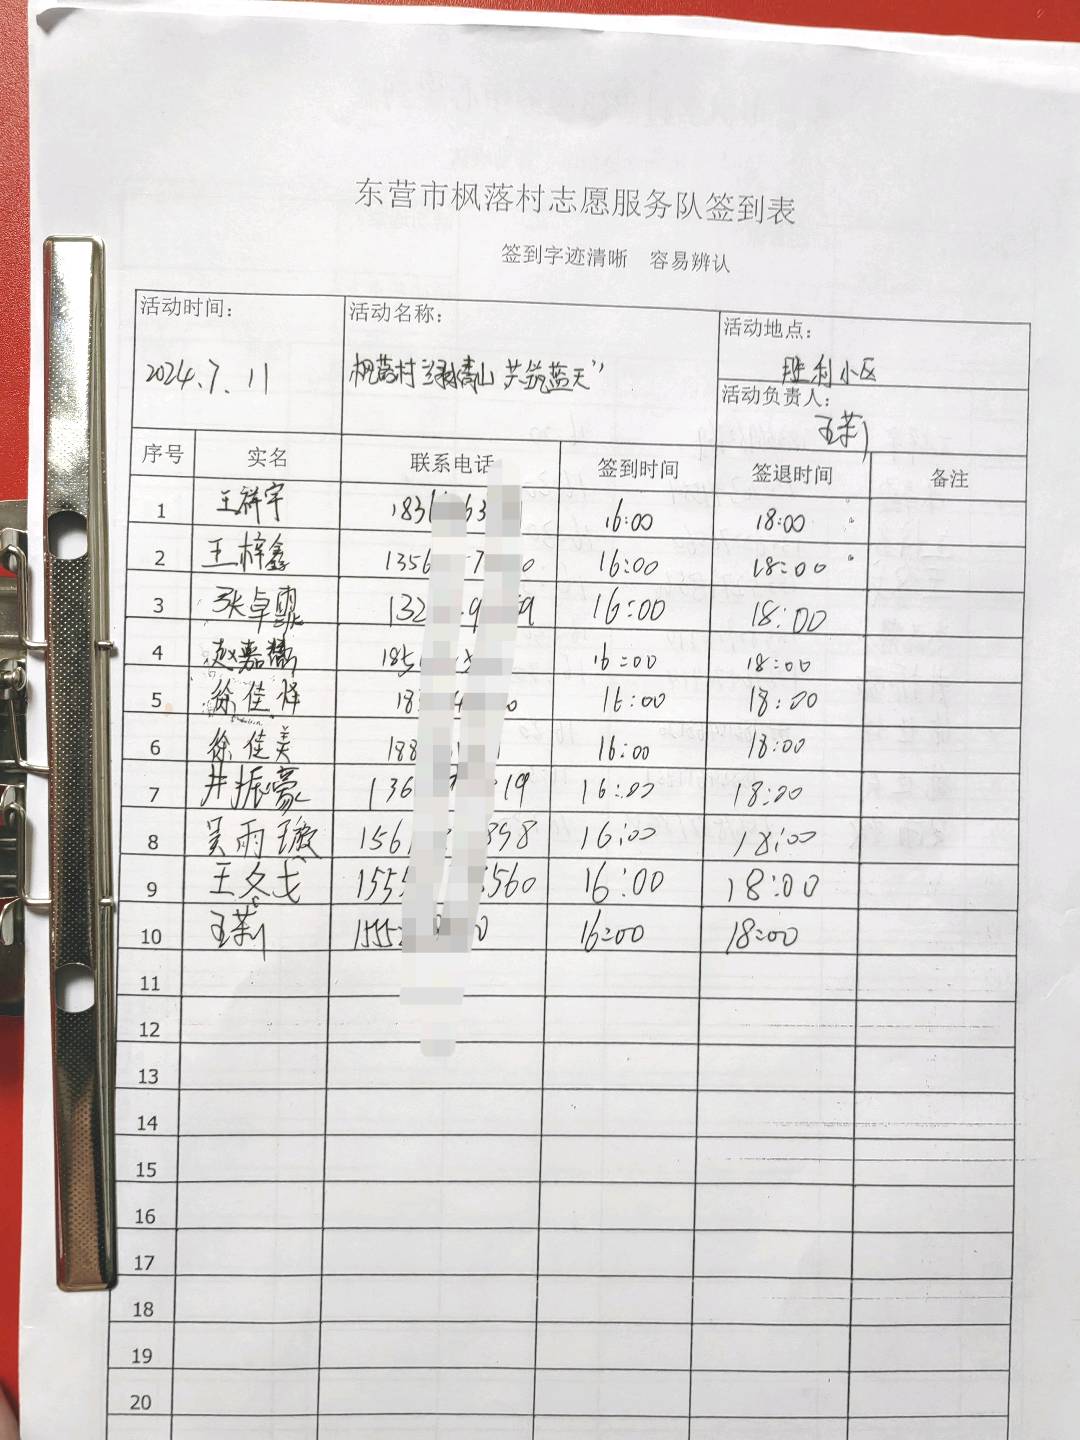 东营市枫落村志愿服务队签到表
签到字迹清晰 容易辨认
活动时间: 活动名称: 活动地点:
2024.7.11 枫落村"绿水青山 共筑蓝天" 胜利小区
活动负责人:
王莉
序号 实名 联系电话 签到时间 签退时间 备注
1 王祥宇 183 63 16:00 18:00
2 王梓鑫 1356 7 0 16:00 18:00
3 张卓霏 132 9 9 16:00 18:00
4 赵嘉 185 16:00 18:00
5 徐佳烨 18 16:00 18:00
6 徐佳美 188 16:00 18:00
7 井振豪 136 19 16:00 18:00
8 吴雨璇 156 898 16:00 18:00
9 王冬戈 155 560 16:00 18:00
10 王莉 1555 0 16:00 18:00
11
12
13
14
15
16
17
18
19
20